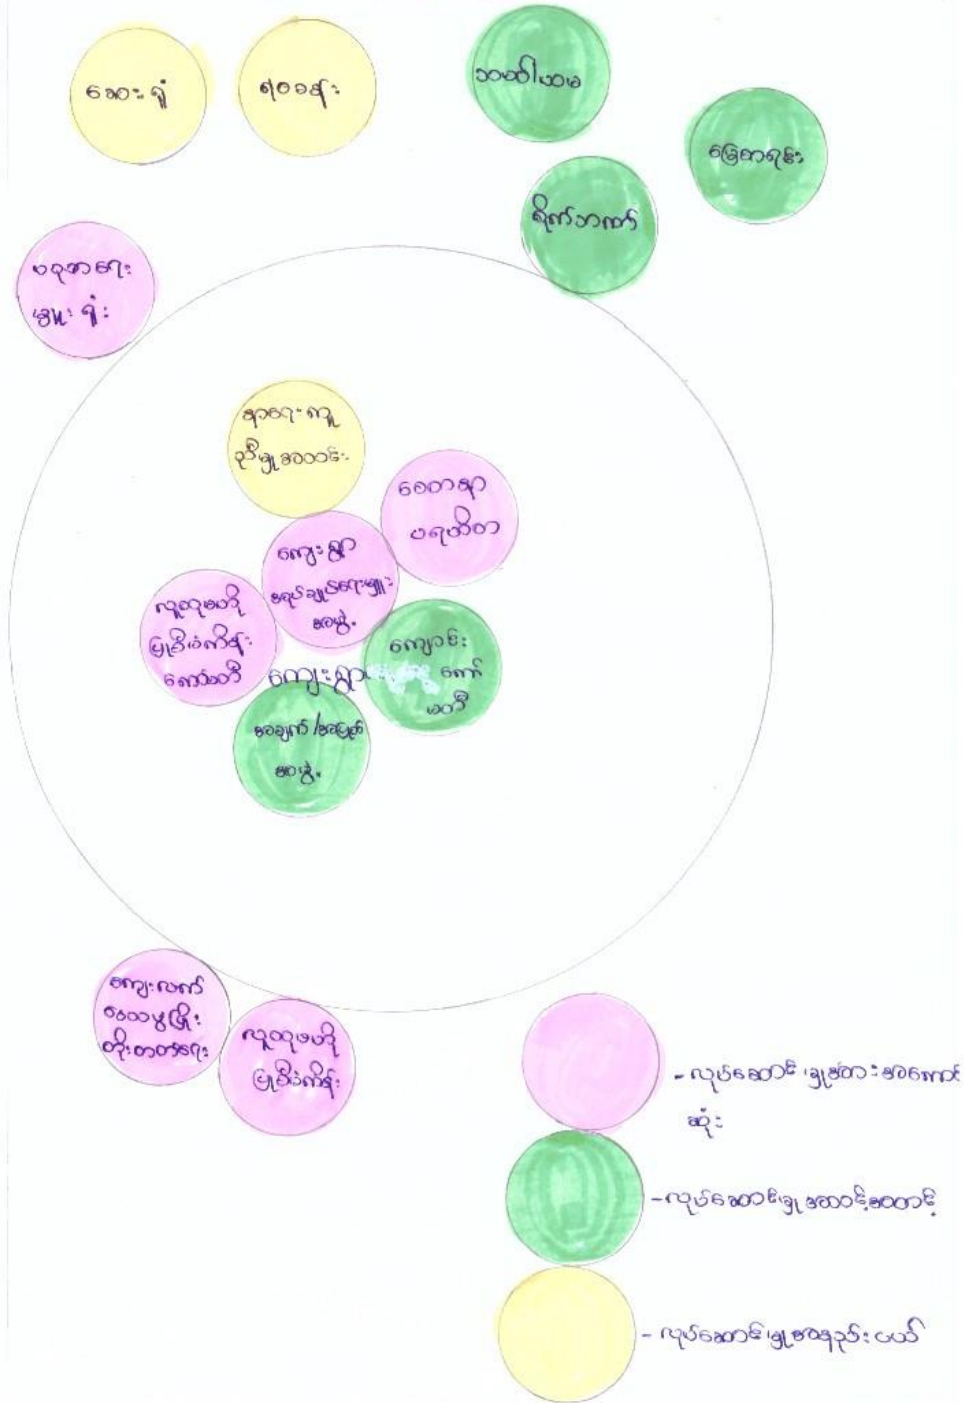 ဆေးရုံ
ရဲစခန်း
သမဝါယမ
မြေစာရင်း
စိုက်ဘဏ်
ပညာရေး
မှူးရုံး
နာရေးကူ
ညီမှုအသင်း
စေတနာ
ပရဟိတ
ကျေးရွာ
အုပ်ချုပ်ရေးမှူး
အဖွဲ့
လူထုဗဟို
ပြုစီမံကိန်း
ကော်မတီ
ကျောင်း
ကော်
မတီ
ကျေးရွာ
အချက်/အပြုတ်
အဖွဲ့
ကျေးလက်
ဒေသဖွံ့ဖြိုး
တိုးတတ်ရေး
လူထုဗဟို
ပြုစီမံကိန်း
- လုပ်ဆောင်မှုအားအကောင်
ဆုံး
- လုပ်ဆောင်မှုအသင့်အတင့်
- လုပ်ဆောင်မှုအနည်းငယ်